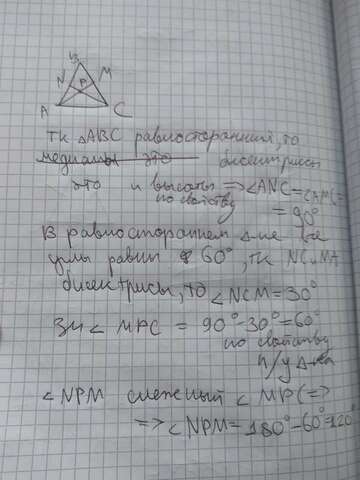 B
N M
P
A C
тк △ABC равносторонний, то
медианы это бисектриссы
это и высоты => ∠ANC = ∠AMC =
по свойству
= 90°
В равностороннем △-ке все
углы равны 60°, тк NC и MA
бисектрисы, то ∠NCM = 30°
Зн ∠ MPC = 90° - 30° = 60°
по свойству
п/у △-ка
∠NPM смежный ∠ MPC =>
=> ∠NPM = 180° - 60° = 120°